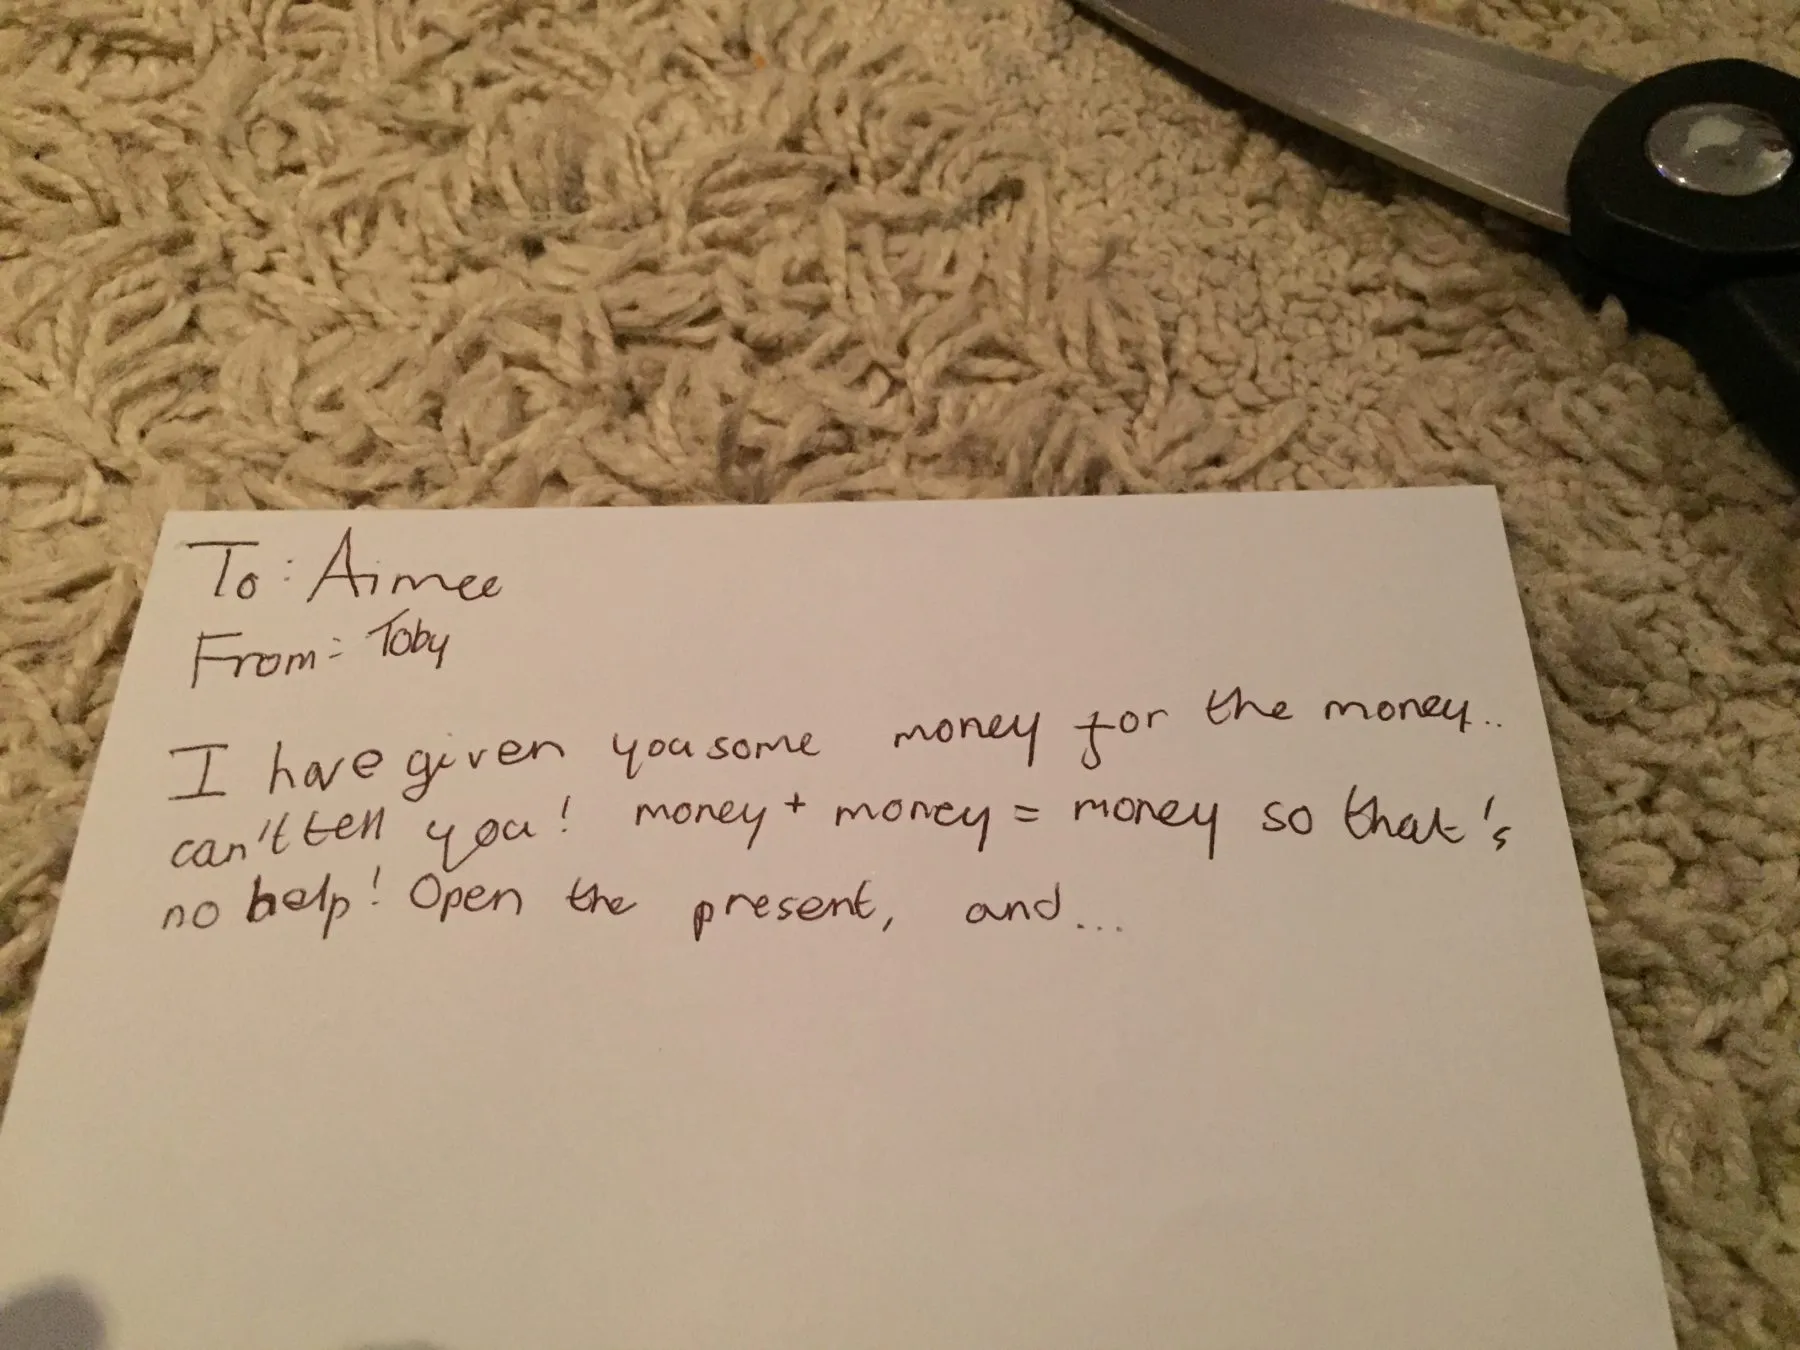 To: Aimee
From: Toby
I have given you some money for the money..
can't tell you! money + money = money so that's
no help! Open the present, and...